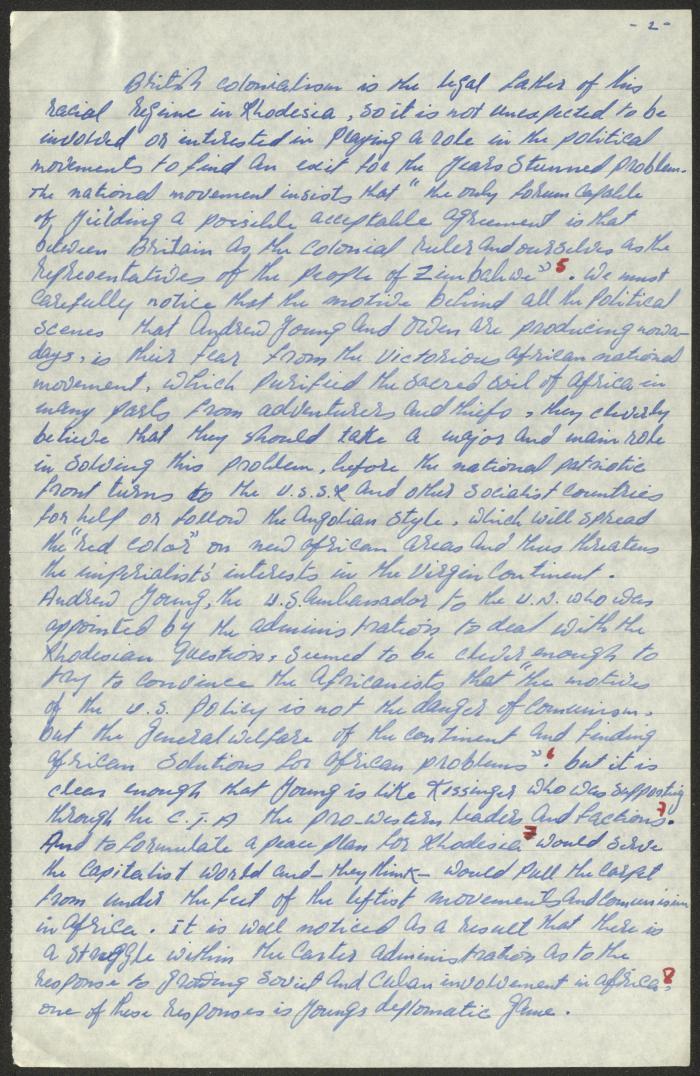 - 2 -
British colonialism is the legal father of this
racial regime in Rhodesia, so it is not unexpected to be
involved or interested in playing a role in the political
movements to find an exit for the years stunned problem.
The national movement insists that "the only forum capable
of yielding a possible acceptable agreement is that
between Britain as the colonial ruler and ourselves as the
representatives of the people of Zimbabwe" 5. We must
carefully notice that the motive behind all the political
scenes that Andrew Young and Owen are producing nowa-
days, is their fear from the victorious african national
movement, which purified the sacred soil of Africa in
many parts from adventurers and thiefs, they cleverly
believe that they should take a major and main role
in solving this problem, before the national patriotic
front turns to the U.S.S.R and other socialist countries
for help or follow the Angolian style, which will spread
the "red color" on new african areas and thus threatens
the imperialist's interests in the virgin continent.
Andrew Young, the U.S. ambassador to the U.N. who was
appointed by the administration to deal with the
Rhodesian question, seemed to be clever enough to
try to convince the Africanists that "the motives
of the U.S. policy is not the danger of communism,
but the general welfare of the continent and finding
african solutions for african problems" 6 but it is
clear enough that Young is like Kissinger who was supporting
through the C.I.A the pro-western leaders and factions 7.
And to formulate a peace plan for Rhodesia 7 would serve
the capitalist world and - they think - would pull the carpet
from under the feet of the leftist movements and communism
in Africa. It is well noticed as a result that there is
a struggle within the Carter administration as to the
response to growing Soviet and Cuban involvement in africa 8,
one of these responses is Youngs deplomatic game.